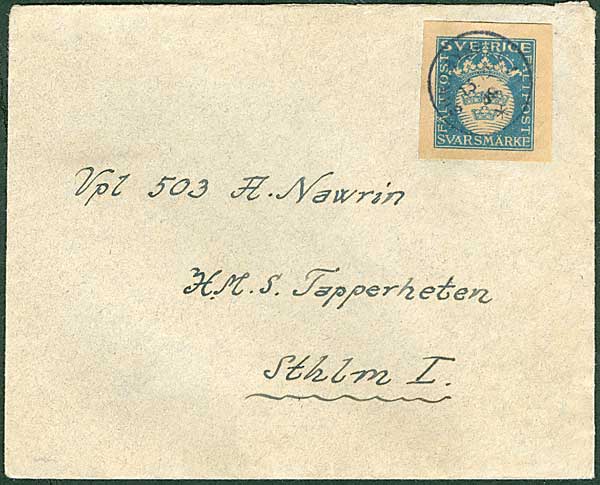 SVERIGE
FÄLTPOST
FÄLTPOST
SVARSMÄRKE
Vpl 503 A. Nawrin
H.M.S. Tapperheten
Sthlm I.